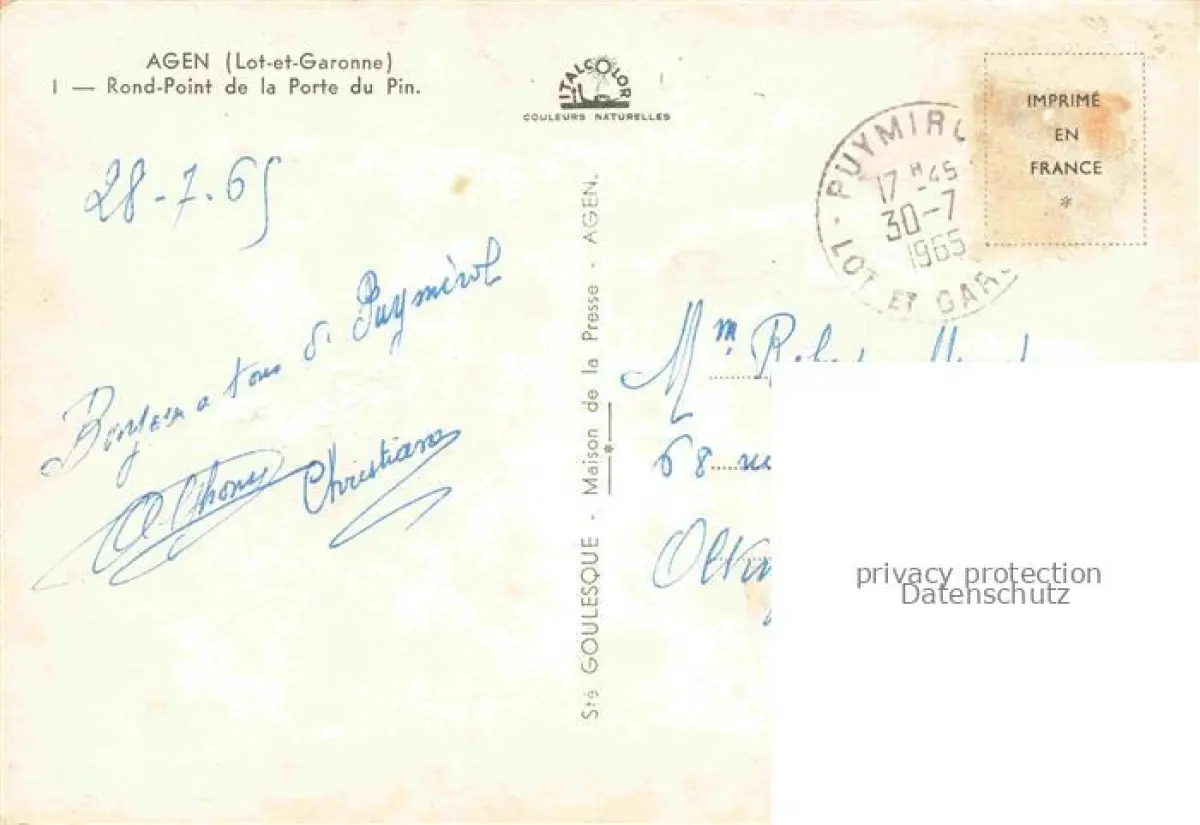 AGEN (Lot-et-Garonne)
1 — Rond-Point de la Porte du Pin.
ITALCOLOR
COULEURS NATURELLES
28-7-65
Bonjour a tous de Puymirol
Christiane
Sté GOULESQUE - Maison de la Presse - AGEN.
PUYMIRO
17 H 45
30-7
1965
LOT ET GARO
IMPRIMÉ
EN
FRANCE
*
Mm
68
privacy protection
Datenschutz